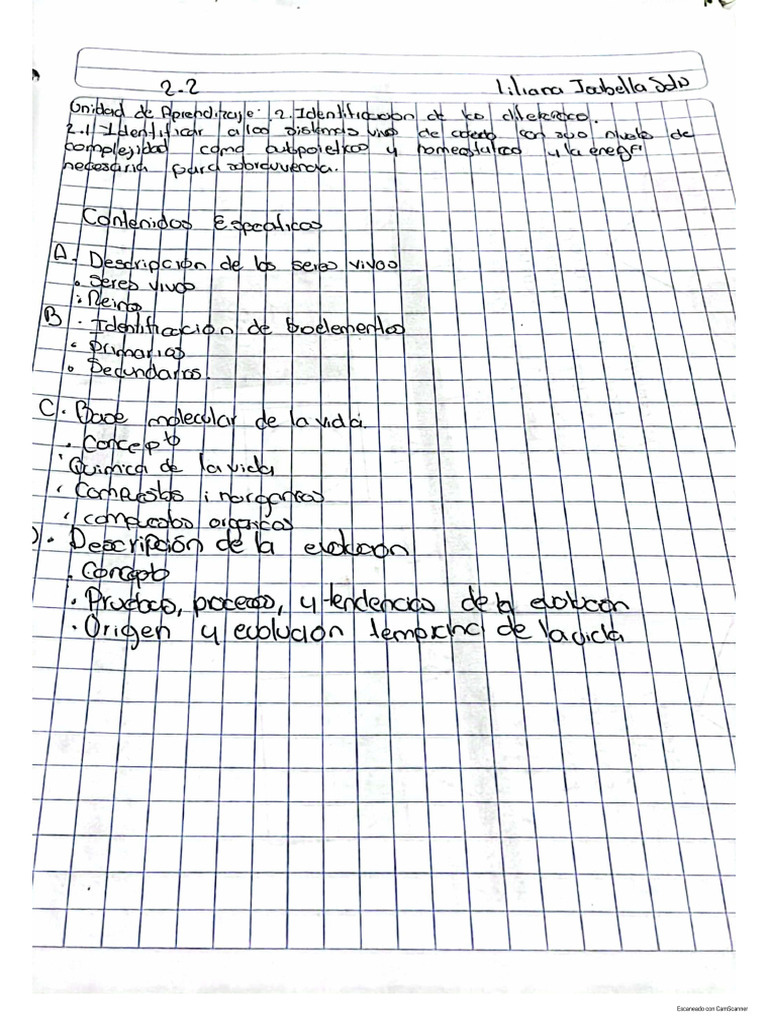 2.2 Liliana Isabella Soto
Unidad de Aprendizaje: 2. Identificacion de los diferentes.
2.1 Identificar a los sistemas vivos de acuerdo con sus niveles de
complejidad como autopoietico y homeostatico y la energia
necesaria para sobrevivencia.
Contenidos Especificos
A. Descripción de los seres vivos
• Seres vivos
• Reino
B. Identificación de bioelementos
• Primarios
• Secundarios.
C. Base molecular de la vida.
• Concepto
• Quimica de la vida
• Compuestos inorganicos
• compuestos organicos
D. Descripción de la evolucion
• Concepto
• Pruebas, procesos, y tendencias de la evolucion
• Origen y evolución temprana de la vida
Escaneado con CamScanner